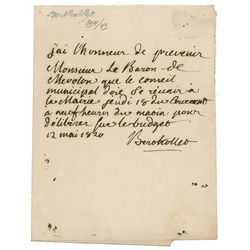 Berthollet
j'ai l'honneur de prevenir
Monsieur Le Baron de
Mévolon que le conseil
municipal doit se réunir à
la Mairie jeudi 18 du Courrant
à neuf heures du matin pour
délibérer sur le budget
12 mai 1820
Berthollet